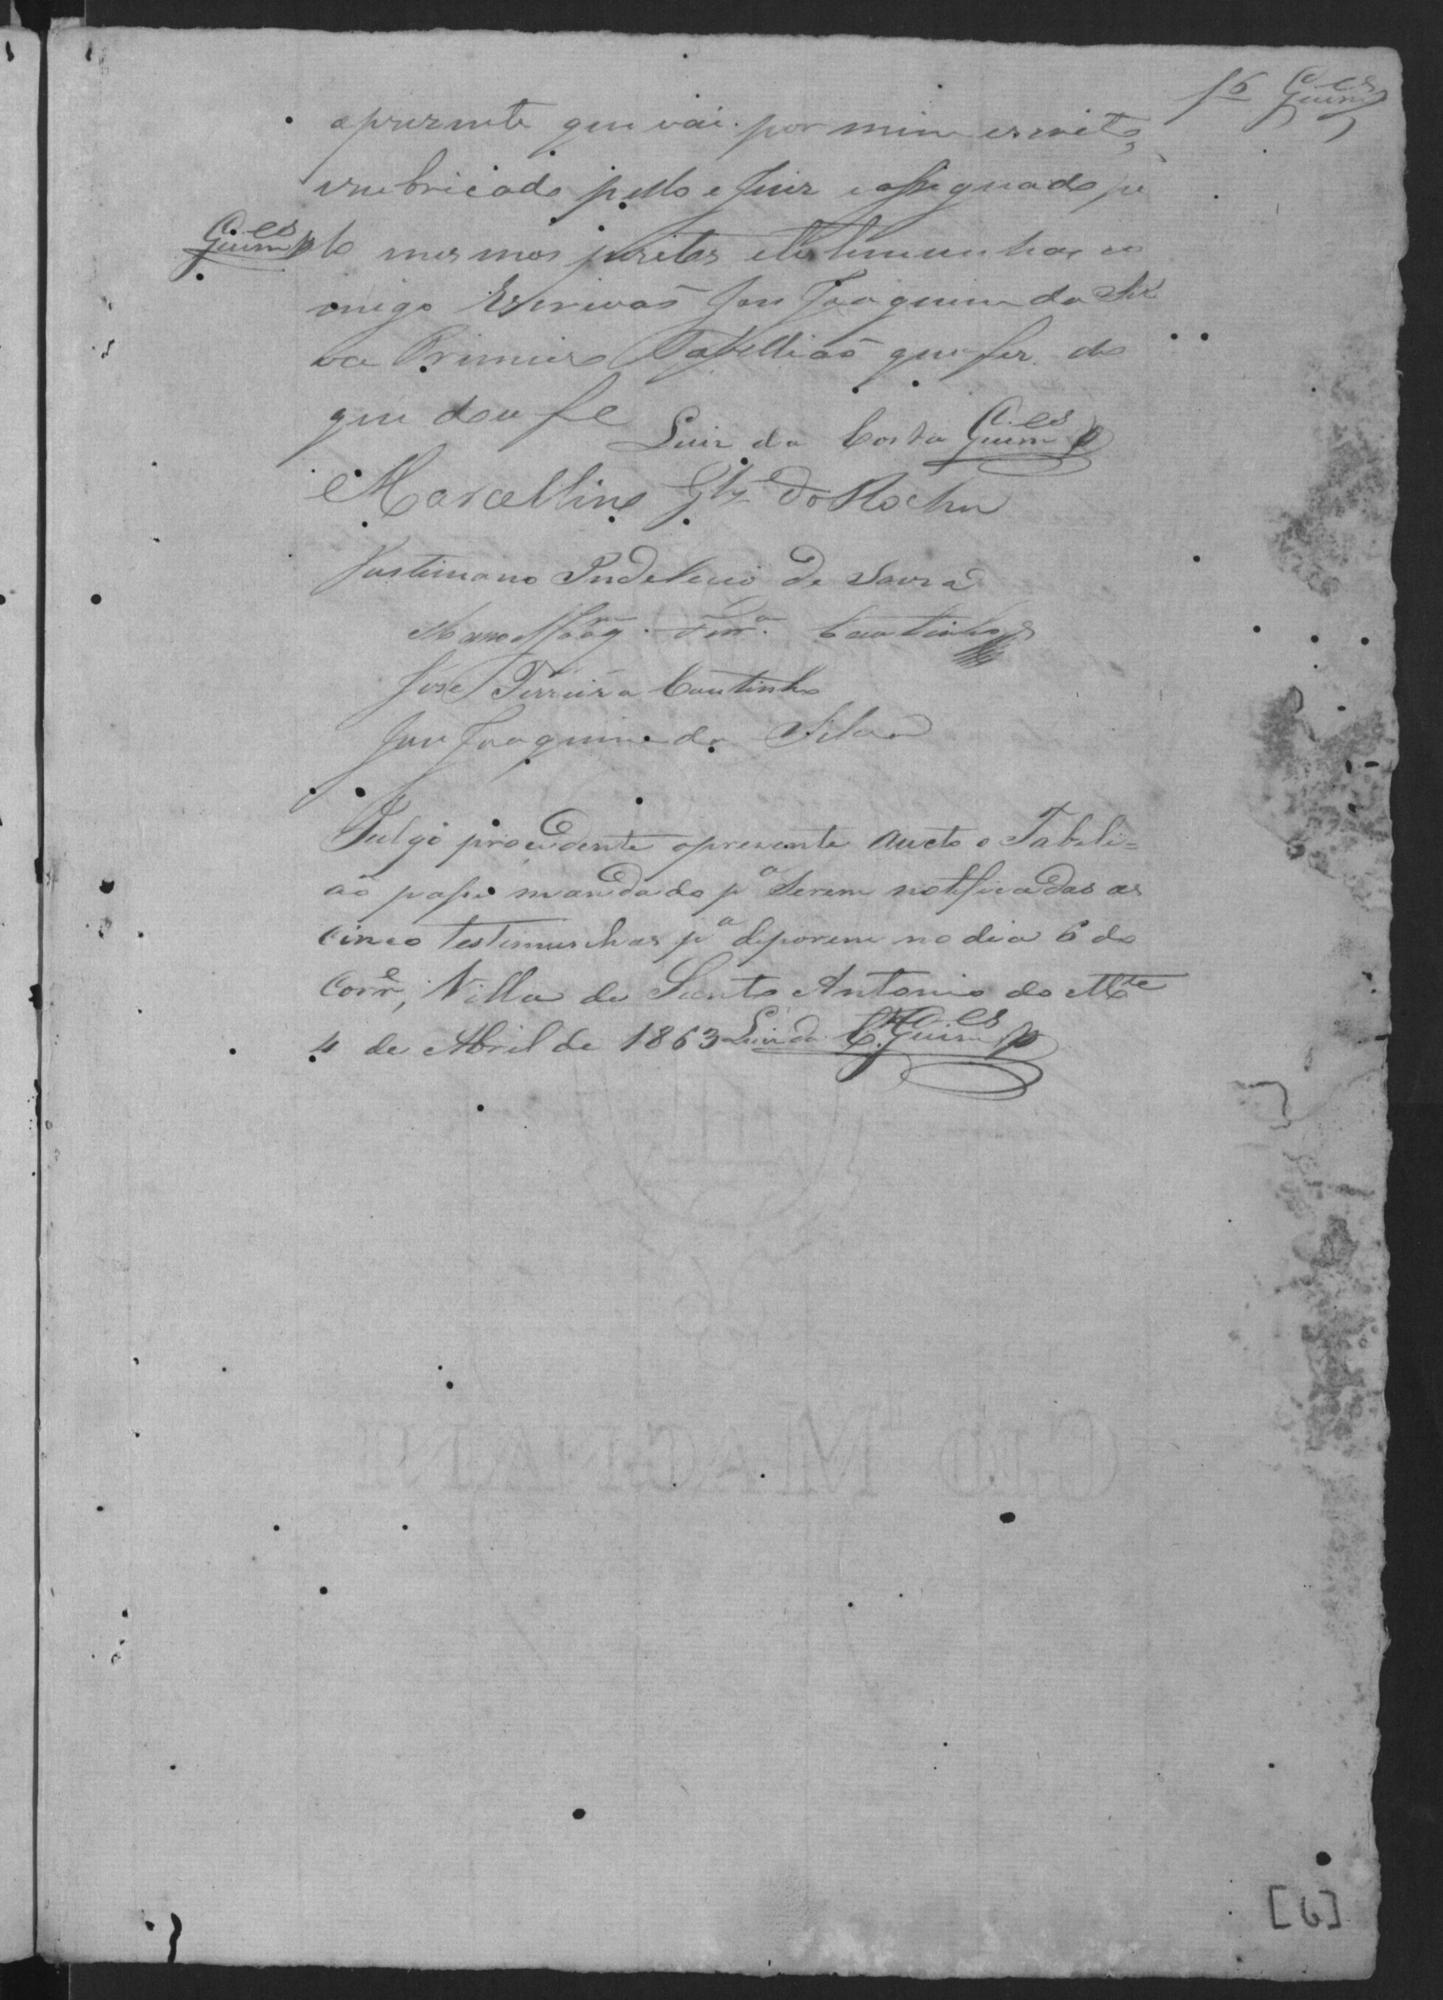 f 6 Guim.es
apresente que vai por mim escrito,
rubricado pello e Juiz e assignado pe
Guim.es
lo mesmos peritos e testemunhas co
migo Escrivaõ Joze Joaquim da Sil
va Primeiro Tabelliaõ que fez do
que dou fe
Luiz da Costa Guim.es
Marcellino Glz da Rocha
Justiniano Indelecio de Souza
Ferr.a Coutinho
José Ferreira Coutinho
Joze Joaquim da Silva
Julgo procedente opresente Aucto o Tabeli=
aõ passe mandado p.a Serem notificadas as
Cinco testimunhas p.a deporem no dia 6 do
Corr.e, Villa de Santo Antonio do M.te
4 de Abril de 1863 Luiz da C. Guim.es
CIO MAGNANI
[6]